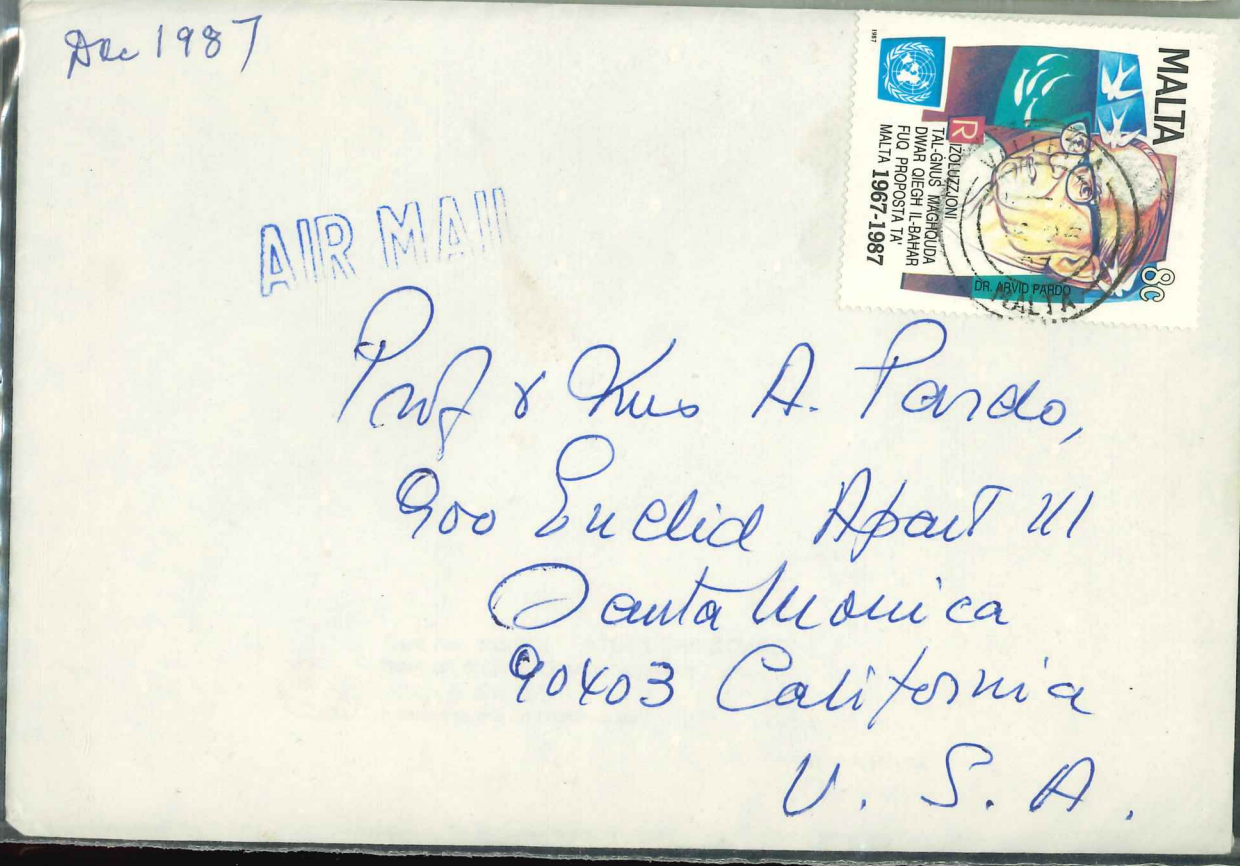 Dec 1987
AIR MAIL
1987
MALTA
RIŻOLUZZJONI
TAL-ĠNUS MAGĦQUDA
DWAR QIEGĦ IL-BAĦAR
FUQ PROPOSTA TA'
MALTA 1967-1987
8c
DR. ARVID PARDO
MALTA
Prof & Mrs A. Pardo,
900 Euclid Apart 111
Santa Monica
90403 California
U. S. A.